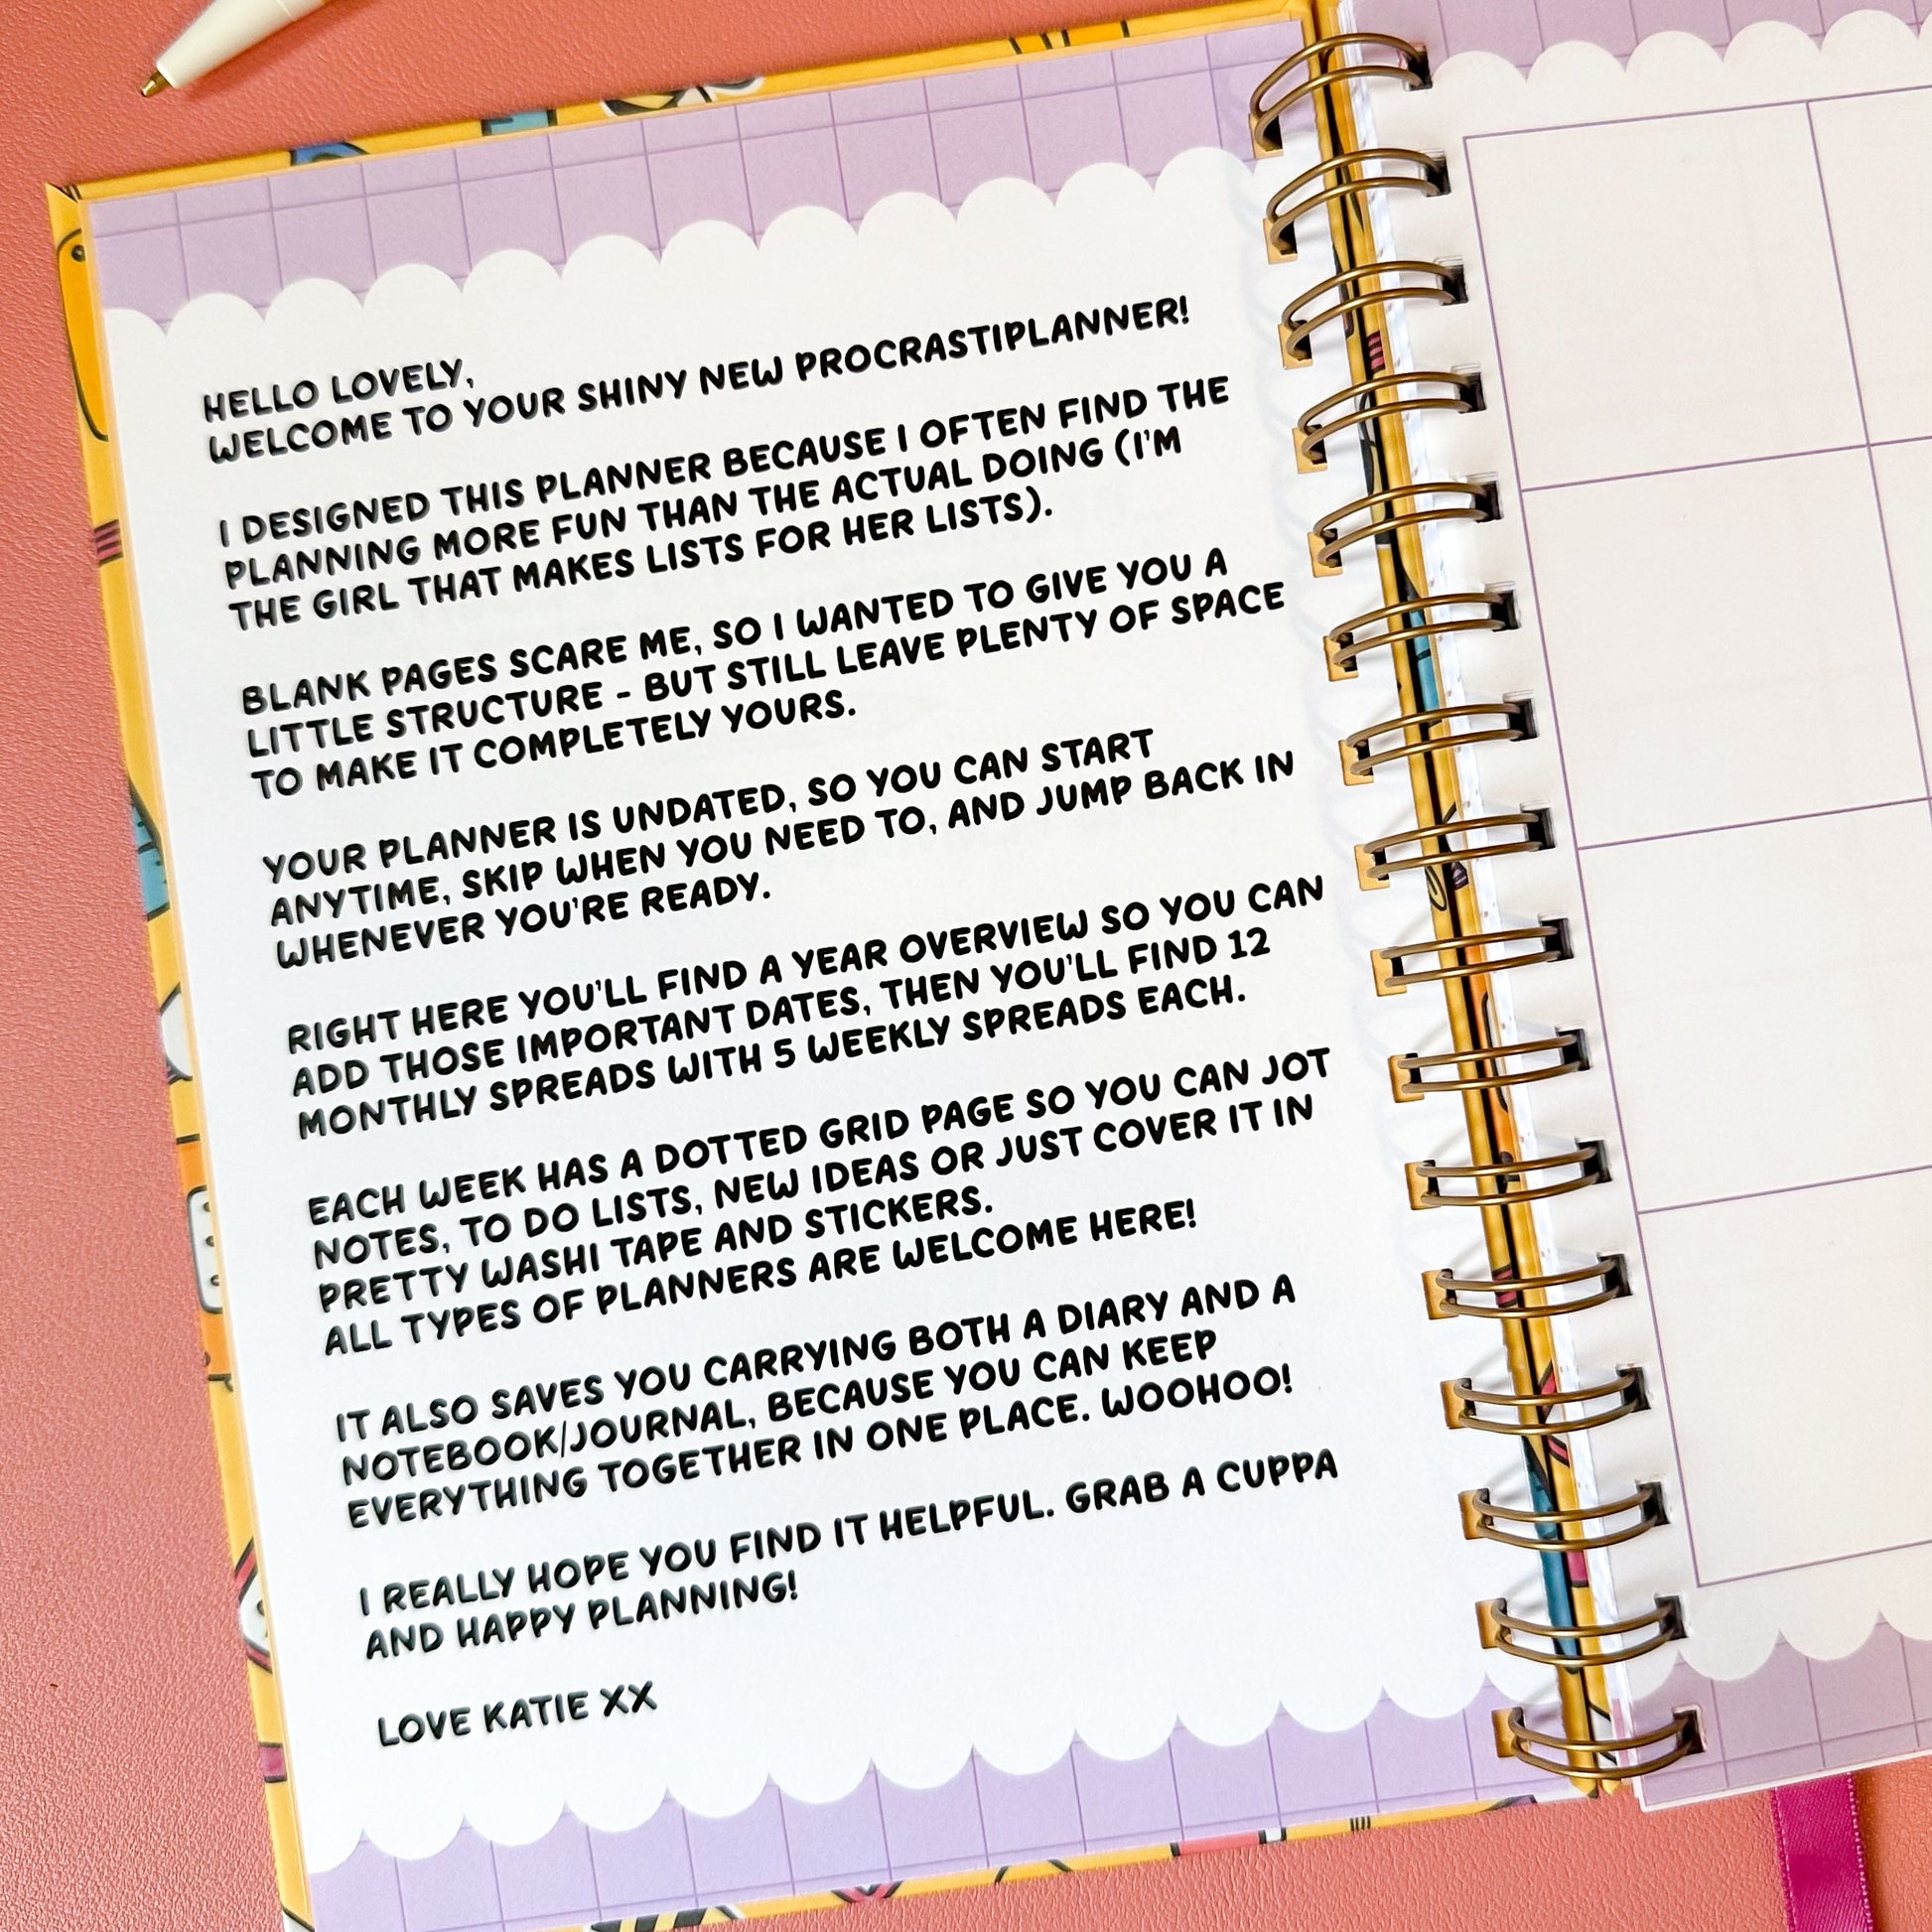 HELLO LOVELY,
WELCOME TO YOUR SHINY NEW PROCRASTIPLANNER!
I DESIGNED THIS PLANNER BECAUSE I OFTEN FIND THE
PLANNING MORE FUN THAN THE ACTUAL DOING (I'M
THE GIRL THAT MAKES LISTS FOR HER LISTS).
BLANK PAGES SCARE ME, SO I WANTED TO GIVE YOU A
LITTLE STRUCTURE - BUT STILL LEAVE PLENTY OF SPACE
TO MAKE IT COMPLETELY YOURS.
YOUR PLANNER IS UNDATED, SO YOU CAN START
ANYTIME, SKIP WHEN YOU NEED TO, AND JUMP BACK IN
WHENEVER YOU'RE READY.
RIGHT HERE YOU'LL FIND A YEAR OVERVIEW SO YOU CAN
ADD THOSE IMPORTANT DATES, THEN YOU'LL FIND 12
MONTHLY SPREADS WITH 5 WEEKLY SPREADS EACH.
EACH WEEK HAS A DOTTED GRID PAGE SO YOU CAN JOT
NOTES, TO DO LISTS, NEW IDEAS OR JUST COVER IT IN
PRETTY WASHI TAPE AND STICKERS.
ALL TYPES OF PLANNERS ARE WELCOME HERE!
IT ALSO SAVES YOU CARRYING BOTH A DIARY AND A
NOTEBOOK/JOURNAL, BECAUSE YOU CAN KEEP
EVERYTHING TOGETHER IN ONE PLACE. WOOHOO!
I REALLY HOPE YOU FIND IT HELPFUL. GRAB A CUPPA
AND HAPPY PLANNING!
LOVE KATIE XX